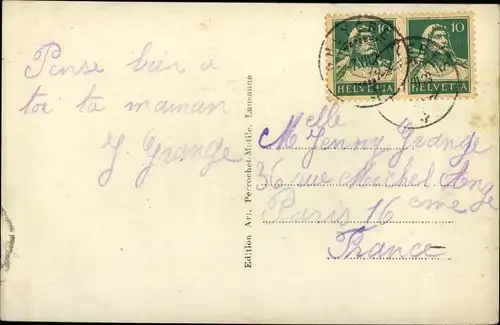 Pense bien à
toi ta maman
J. Grange
Edition Art. Perrochet-Matile, Lausanne
10 10
HELVETIA HELVETIA
Melle Jenny Grange
36 rue Michel Ange
Paris 16 eme
France